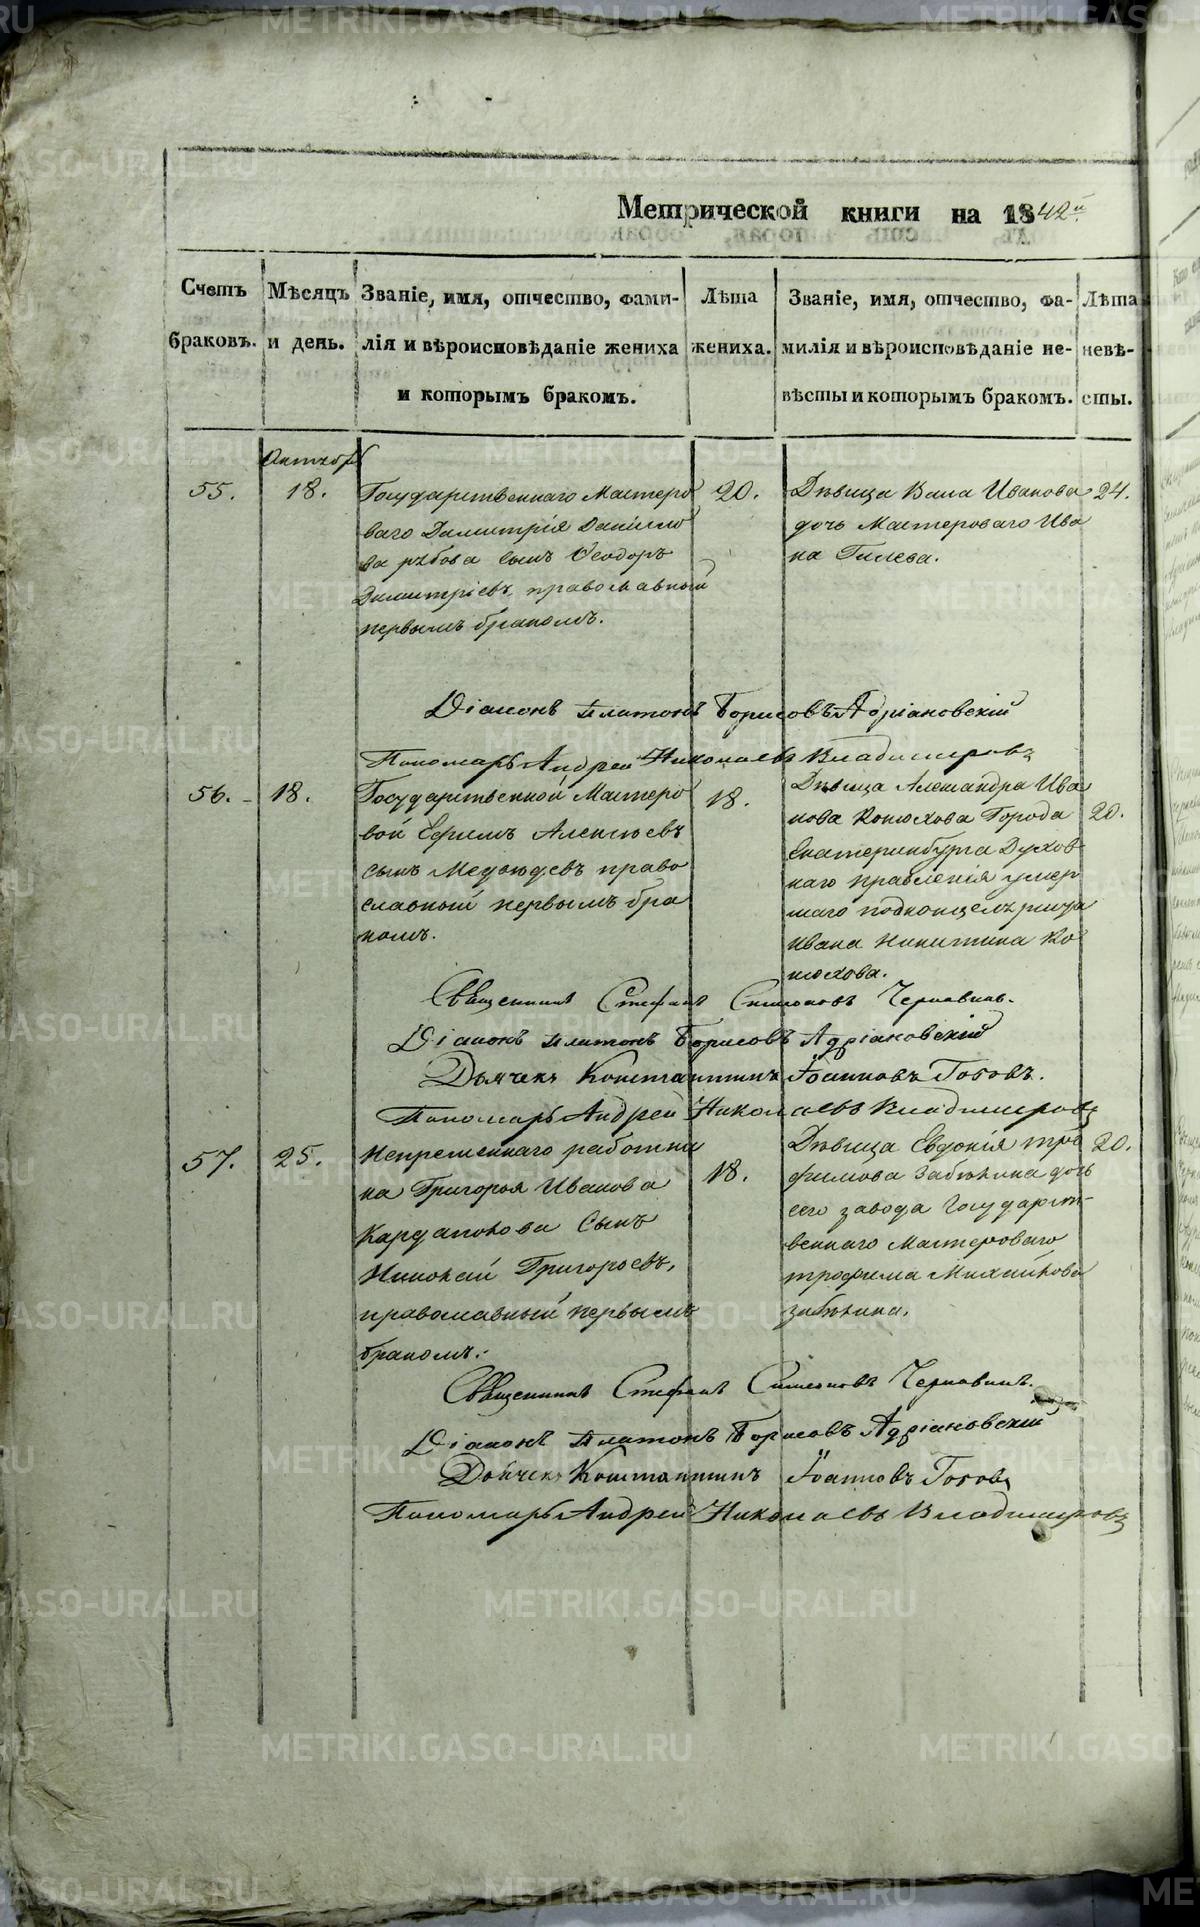 Метрической книги на 1842й
Счетъ браковъ.
Мѣсяцъ и день.
Званіе, имя, отчество, фами-
лія и вѣроисповѣданіе жениха
и которымъ бракомъ.
Лѣта жениха.
Званіе, имя, отчество, фа-
милія и вѣроисповѣданіе не-
вѣсты и которымъ бракомъ.
Лѣта невѣ-
сты.
Октябр
55. 18.
Государственнаго Мастеро
ваго Димитрія Данило
ва сынъ Ѳеодоръ
Димитріевъ, православный
первымъ бракомъ.
20.
Дѣвица Иванова
дочь Мастероваго Ива
на Гилева.
24.
Діаконъ Платонъ Борисовъ Адріановскій
Пономарь Андрей Николаевъ Владимировъ
56. 18.
Государственной Мастеро
вой Ефимъ Алексѣевъ
сынъ право
славный первымъ бра
комъ.
18.
Дѣвица Александра Ива
нова Конюхова Города
Екатеринбурга Духов
наго правленія умер
шаго подканцеляриста
Ивана Никитина Ко
нюхова.
20.
Священникъ Стефанъ Симеоновъ Чернавинъ.
Діаконъ Платонъ Борисовъ Адріановскій
Дьячекъ Константинъ Іоанновъ Поповъ.
Пономарь Андрей Николаевъ Владимировъ
57. 25.
Непременнаго работни
ка Григорья Иванова
Кардапокова Сынъ
Николай Григорьевъ,
православный первымъ
бракомъ.
18.
Дѣвица Евдокія Тро
фимова Забѣлина дочь
сего завода Государст-
веннаго Мастероваго
трофима Михайлова
забѣлина.
20.
Священникъ Стефанъ Симеоновъ Чернавинъ.
Діаконъ Платонъ Борисовъ Адріановскій
Дьячекъ Константинъ Іоанновъ Поповъ
Пономарь Андрей Николаевъ Владимировъ
METRIKI.GASO-URAL.RU